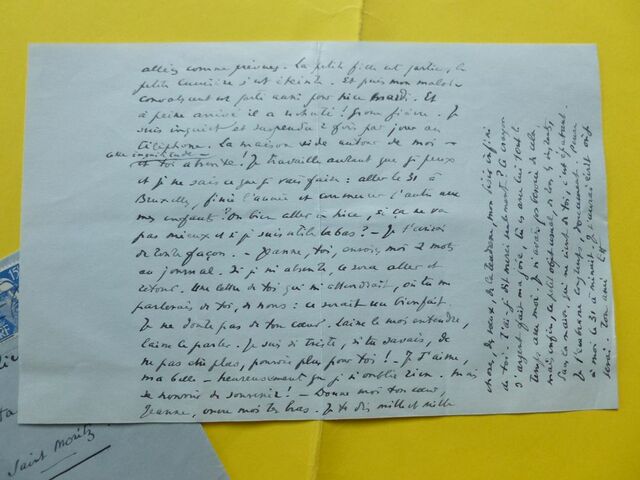 allées comme prévues. La petite fille est partie, la
petite lumière s'est éteinte. Et puis mon malade
convalescent est parti aussi pour Nice mardi. Et
à peine arrivé il a rechuté! grosse fièvre. Je
suis inquiet et suspendu 2 fois par jour au
téléphone. La maison vide autour de moi –
cette inquiétude –
et toi absente! Je travaille autant que je peux
et je ne sais ce que je vais faire: aller le 31 à
Bruxelles, finir l'année et commencer l'autre avec
mes enfants? Ou bien aller à Nice, si ça ne va
pas mieux et si je suis utile là bas? – Je t'aviserai
de toute façon. – Jeanne, toi, envoie moi 2 mots
au journal. Si je m'absente, ce sera aller et
retour. Une lettre de toi qui m'attendrait, où tu me
parlerais de toi, de nous: ce serait un bienfait.
Je ne doute pas de ton cœur. Laisse le moi entendre,
laisse le parler. Je suis si triste, si tu savais, de
ne pas être plus, pouvoir plus pour toi! – Je t'aime,
ma belle – heureusement que je n'oublie rien. Mais
se nourrir de souvenirs! – Donne moi ton cœur,
Jeanne, ouvre moi tes bras. Je te dis mille et mille
choses, des vœux, de la tendresse, mon
de toi. T'ai-je dit merci seulement? le crayon
d'argent fait ma joie, tu es avec lui tout le
temps avec moi. Je n'avais pas besoin de cela
mais enfin, ce petit objet usuel, si loin,
dans la maison, qui me vient de toi, c'est épatant.
Je t'embrasse longtemps, doucement. Pense
à moi le 31 à minuit. Je
serai. Ton ami
Saint Moritz